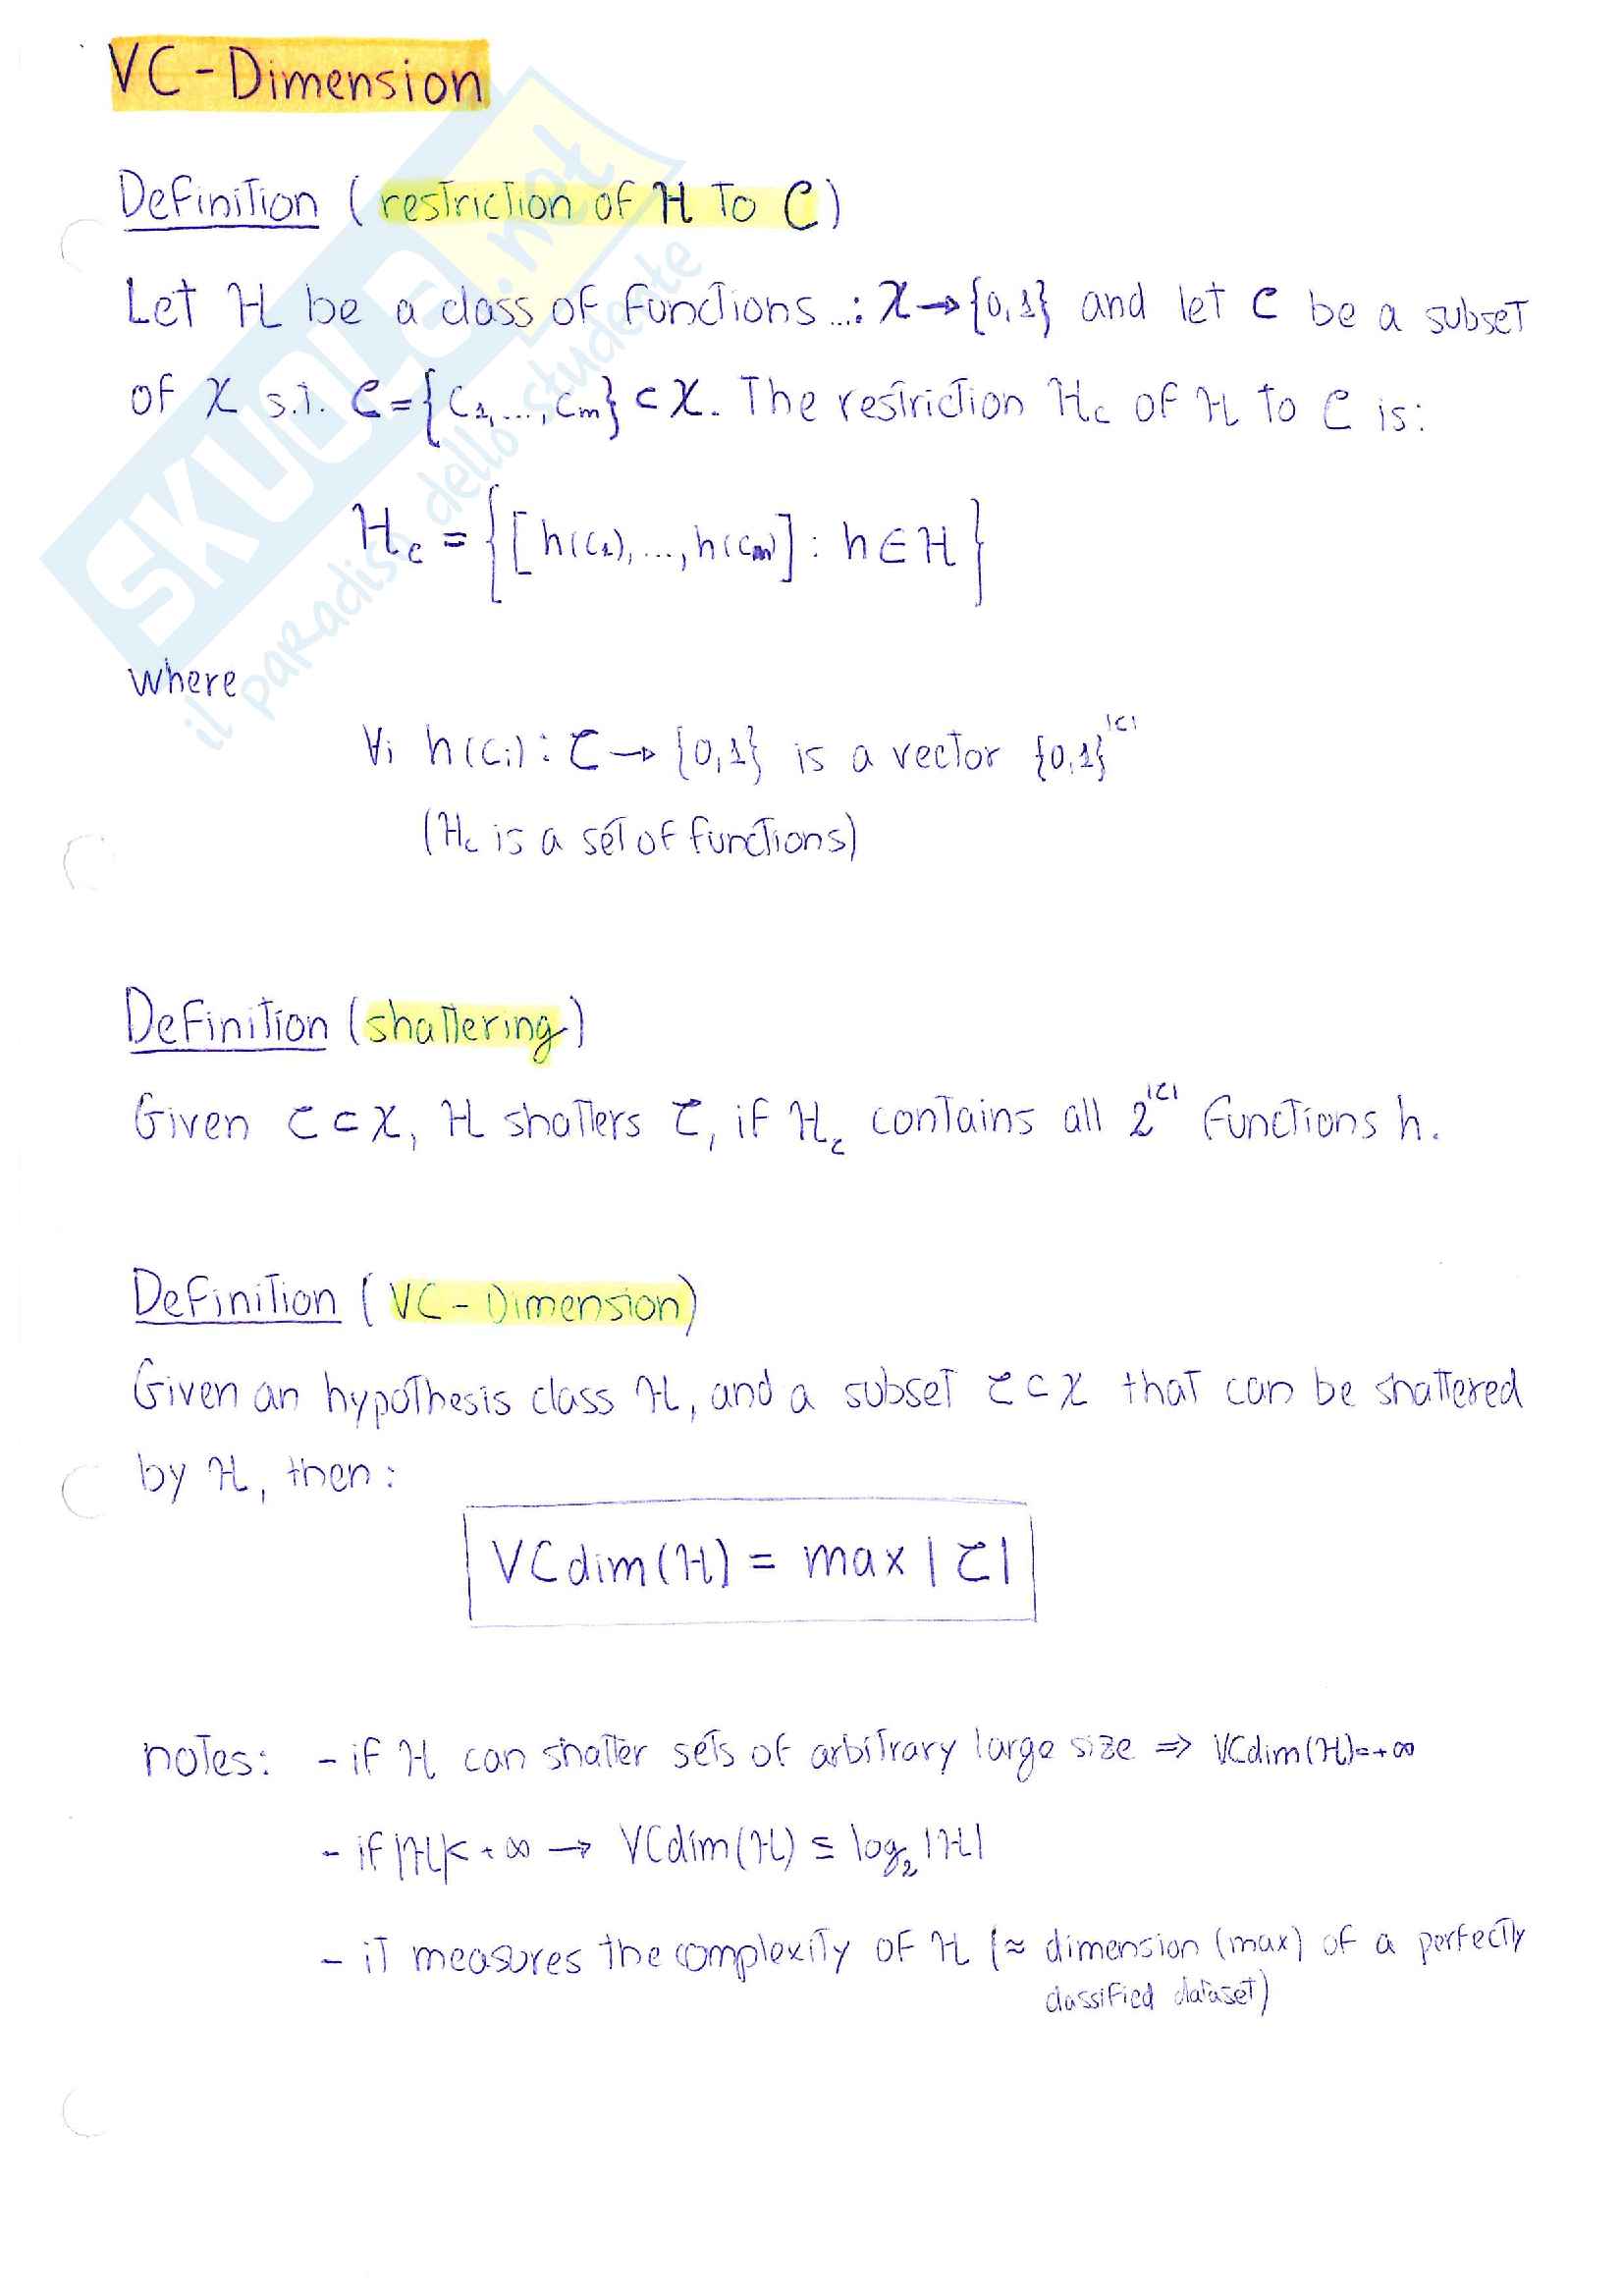 VC-Dimension
Definition (restriction of H to C)
Let H be a class of functions ...: X→{0,1} and let C be a subset
of X s.t. C={c₁,...,cₘ}⊂X. The restriction H_C of H to C is:
H_C = {[h(c₁),...,h(cₘ)] : h∈H}
where
∀i h(cᵢ): C→{0,1} is a vector {0,1}^|C|
(H_C is a set of functions)
Definition (shattering)
Given C⊂X, H shatters C, if H_C contains all 2^|C| functions h.
Definition (VC-Dimension)
Given an hypothesis class H, and a subset C⊂X that can be shattered
by H, then:
VCdim(H) = max |C|
notes: - if H can shatter sets of arbitrary large size ⇒ VCdim(H)=+∞
- if |H|<+∞ → VCdim(H) ≤ log₂|H|
- it measures the complexity of H (≈ dimension (max) of a perfectly
classified dataset)
SKUOLA.net
il paradiso dello studente